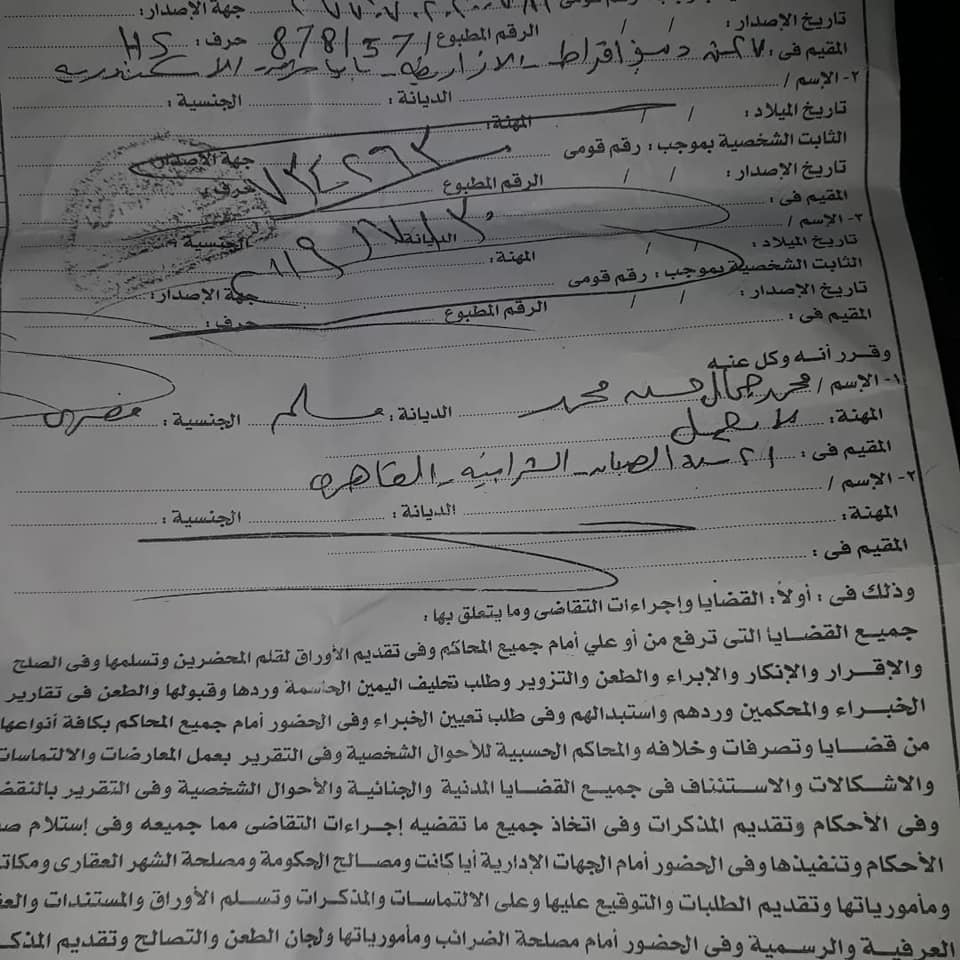 جهة الإصدار:
تاريخ الإصدار: / / الرقم المطبوع / 878157 حرف: HS
المقيم فى: ٢٧ ش ديمقراط - الازاريطة - باب شرق - الاسكندرية
٢- الإسم / الديانة: الجنسية:
تاريخ الميلاد: / / المهنة:
الثابت الشخصية بموجب: رقم قومى جهة الإصدار:
تاريخ الإصدار: / / الرقم المطبوع حرف:
المقيم فى:
٣- الإسم / الديانة: الجنسية:
تاريخ الميلاد: / / المهنة:
الثابت الشخصية بموجب: رقم قومى جهة الإصدار:
تاريخ الإصدار: / / الرقم المطبوع حرف:
المقيم فى:
وقرر أنه وكل عنه
١- الإسم / محمد جمال حسن محمد الديانة: مسلم الجنسية: مصرى
المهنة: لا يعمل
المقيم فى: الشرابية - القاهرة
٢- الإسم / الديانة: الجنسية:
المهنة:
المقيم فى:
وذلك فى: أولاً: القضايا وإجراءات التقاضى وما يتعلق بها:
جميع القضايا التى ترفع من أو علي أمام جميع المحاكم وفى تقديم الأوراق لقلم المحضرين وتسلمها وفى الصلح
والإقرار والإنكار والإبراء والطعن والتزوير وطلب تحليف اليمين الحاسمة وردها وقبولها والطعن فى تقارير
الخبراء والمحكمين وردهم واستبدالهم وفى طلب تعيين الخبراء وفى الحضور أمام جميع المحاكم بكافة أنواعها
من قضايا وتصرفات وخلافه والمحاكم الحسبية للأحوال الشخصية وفى التقرير بعمل المعارضات والالتماسات
والاشكالات والاستئناف فى جميع القضايا المدنية والجنائية والأحوال الشخصية وفى التقرير بالنقض
وفى الأحكام وتقديم المذكرات وفى اتخاذ جميع ما تقضيه إجراءات التقاضى مما جميعه وفى إستلام
الأحكام وتنفيذها وفى الحضور أمام الجهات الإدارية أيا كانت ومصالح الحكومة ومصلحة الشهر العقارى
ومأمورياتها وتقديم الطلبات والتوقيع عليها وعلى الالتماسات والمذكرات وتسلم الأوراق والمستندات
العرفية والرسمية وفى الحضور أمام مصلحة الضرائب ومأمورياتها ولجان الطعن والتصالح وتقديم